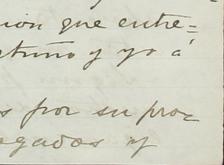 nion que entre=
rtuño y yo á
s por su pro-
egados y